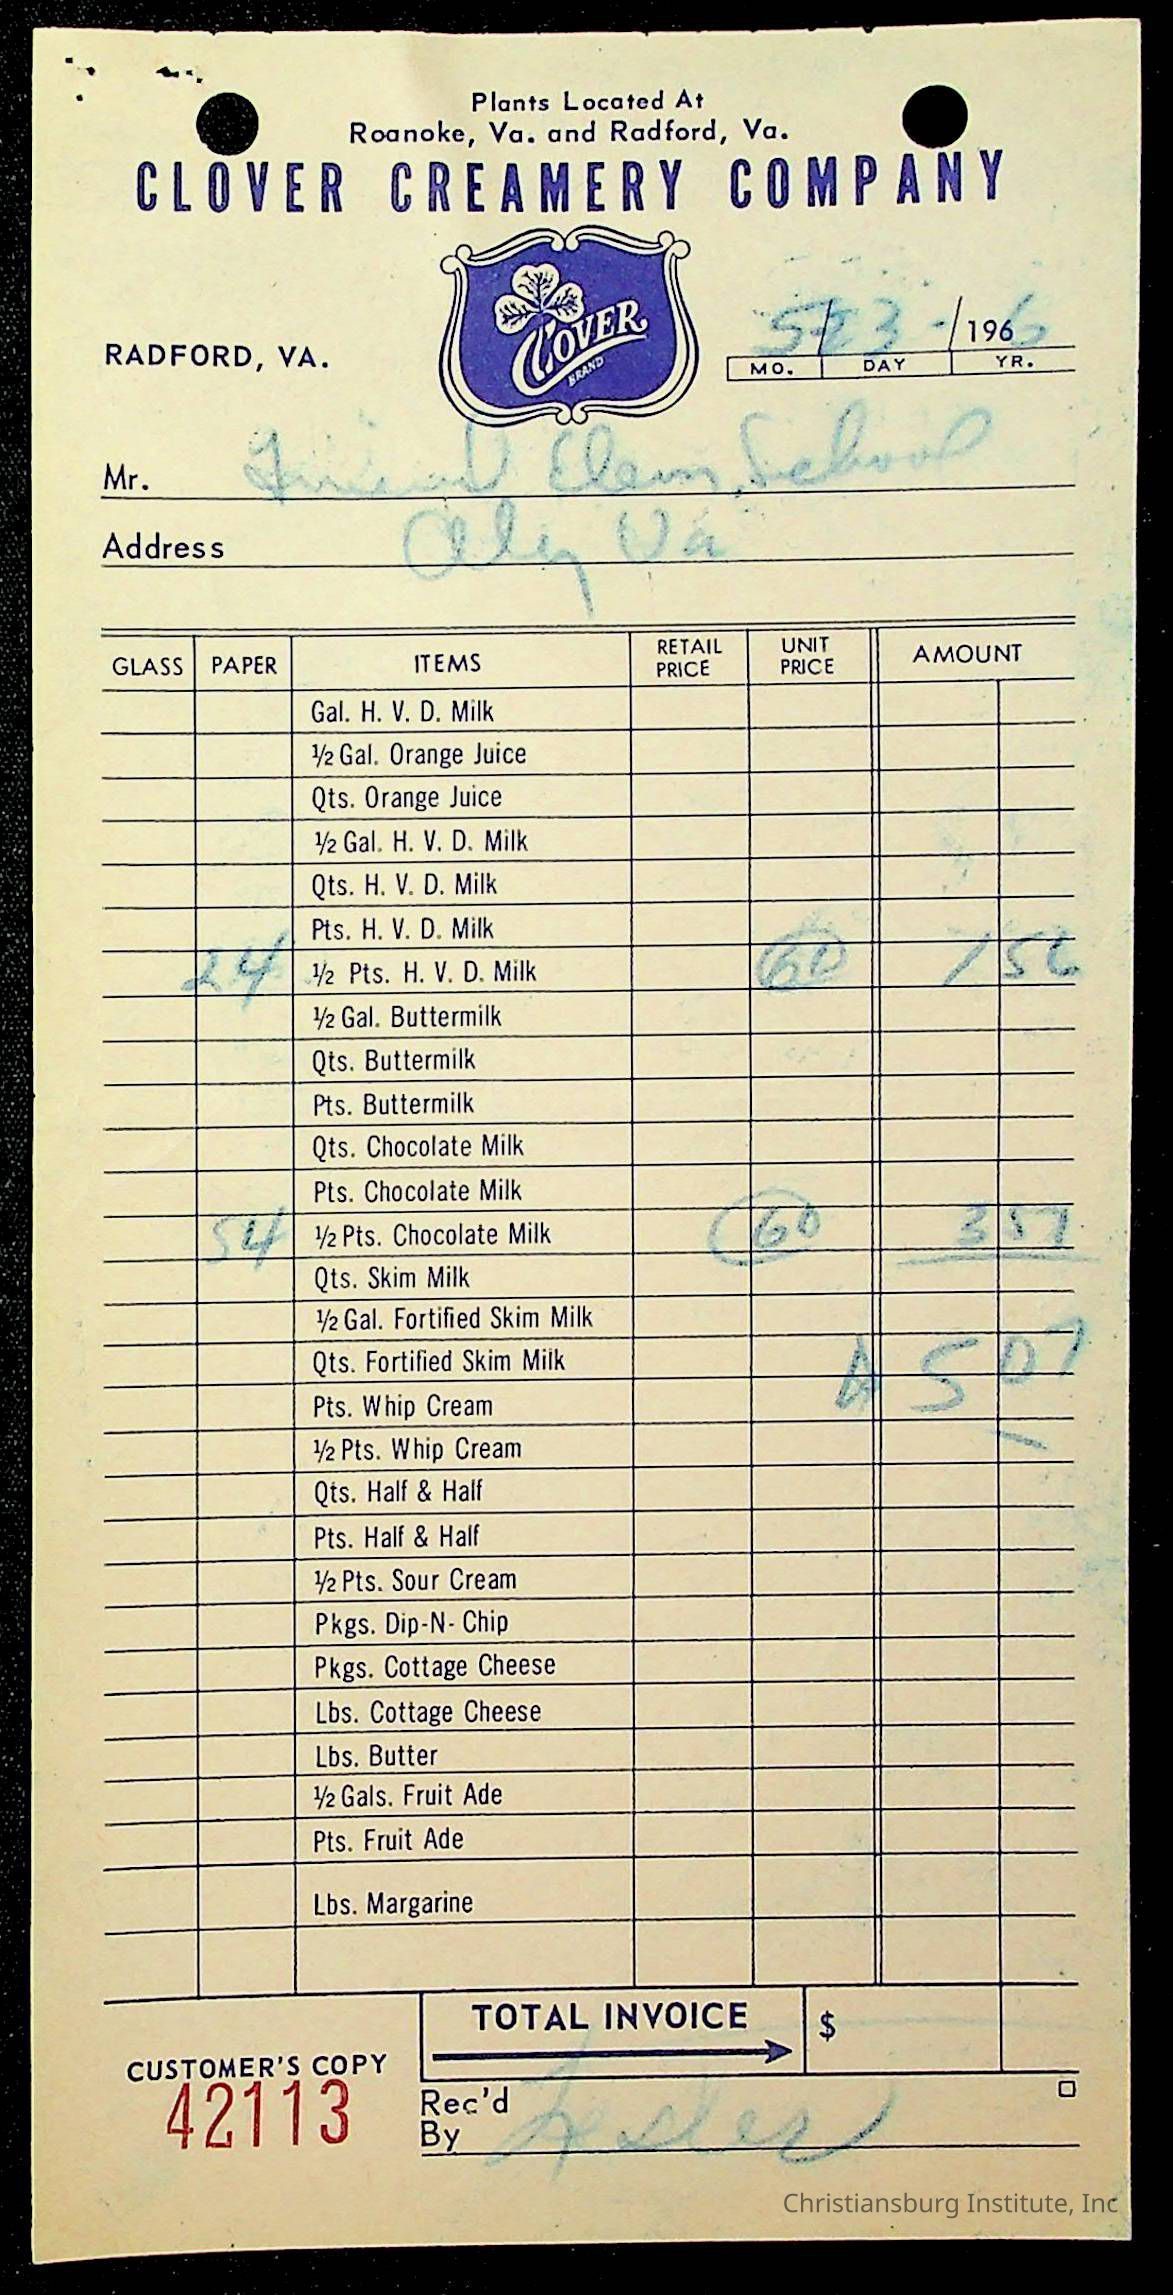 Plants Located At
Roanoke, Va. and Radford, Va.
CLOVER CREAMERY COMPANY
CLOVER
BRAND
RADFORD, VA.
5/23-/1966
MO. DAY YR.
Mr. Elem. School
Address Va
GLASS PAPER ITEMS RETAIL PRICE UNIT PRICE AMOUNT
Gal. H. V. D. Milk
½ Gal. Orange Juice
Qts. Orange Juice
½ Gal. H. V. D. Milk
Qts. H. V. D. Milk
Pts. H. V. D. Milk
24 ½ Pts. H. V. D. Milk 60 1
½ Gal. Buttermilk
Qts. Buttermilk
Pts. Buttermilk
Qts. Chocolate Milk
Pts. Chocolate Milk
54 ½ Pts. Chocolate Milk 60 3 51
Qts. Skim Milk
½ Gal. Fortified Skim Milk
Qts. Fortified Skim Milk 5 07
Pts. Whip Cream
½ Pts. Whip Cream
Qts. Half & Half
Pts. Half & Half
½ Pts. Sour Cream
Pkgs. Dip-N-Chip
Pkgs. Cottage Cheese
Lbs. Cottage Cheese
Lbs. Butter
½ Gals. Fruit Ade
Pts. Fruit Ade
Lbs. Margarine
TOTAL INVOICE $
CUSTOMER'S COPY
42113
Rec'd
By
Christiansburg Institute, Inc